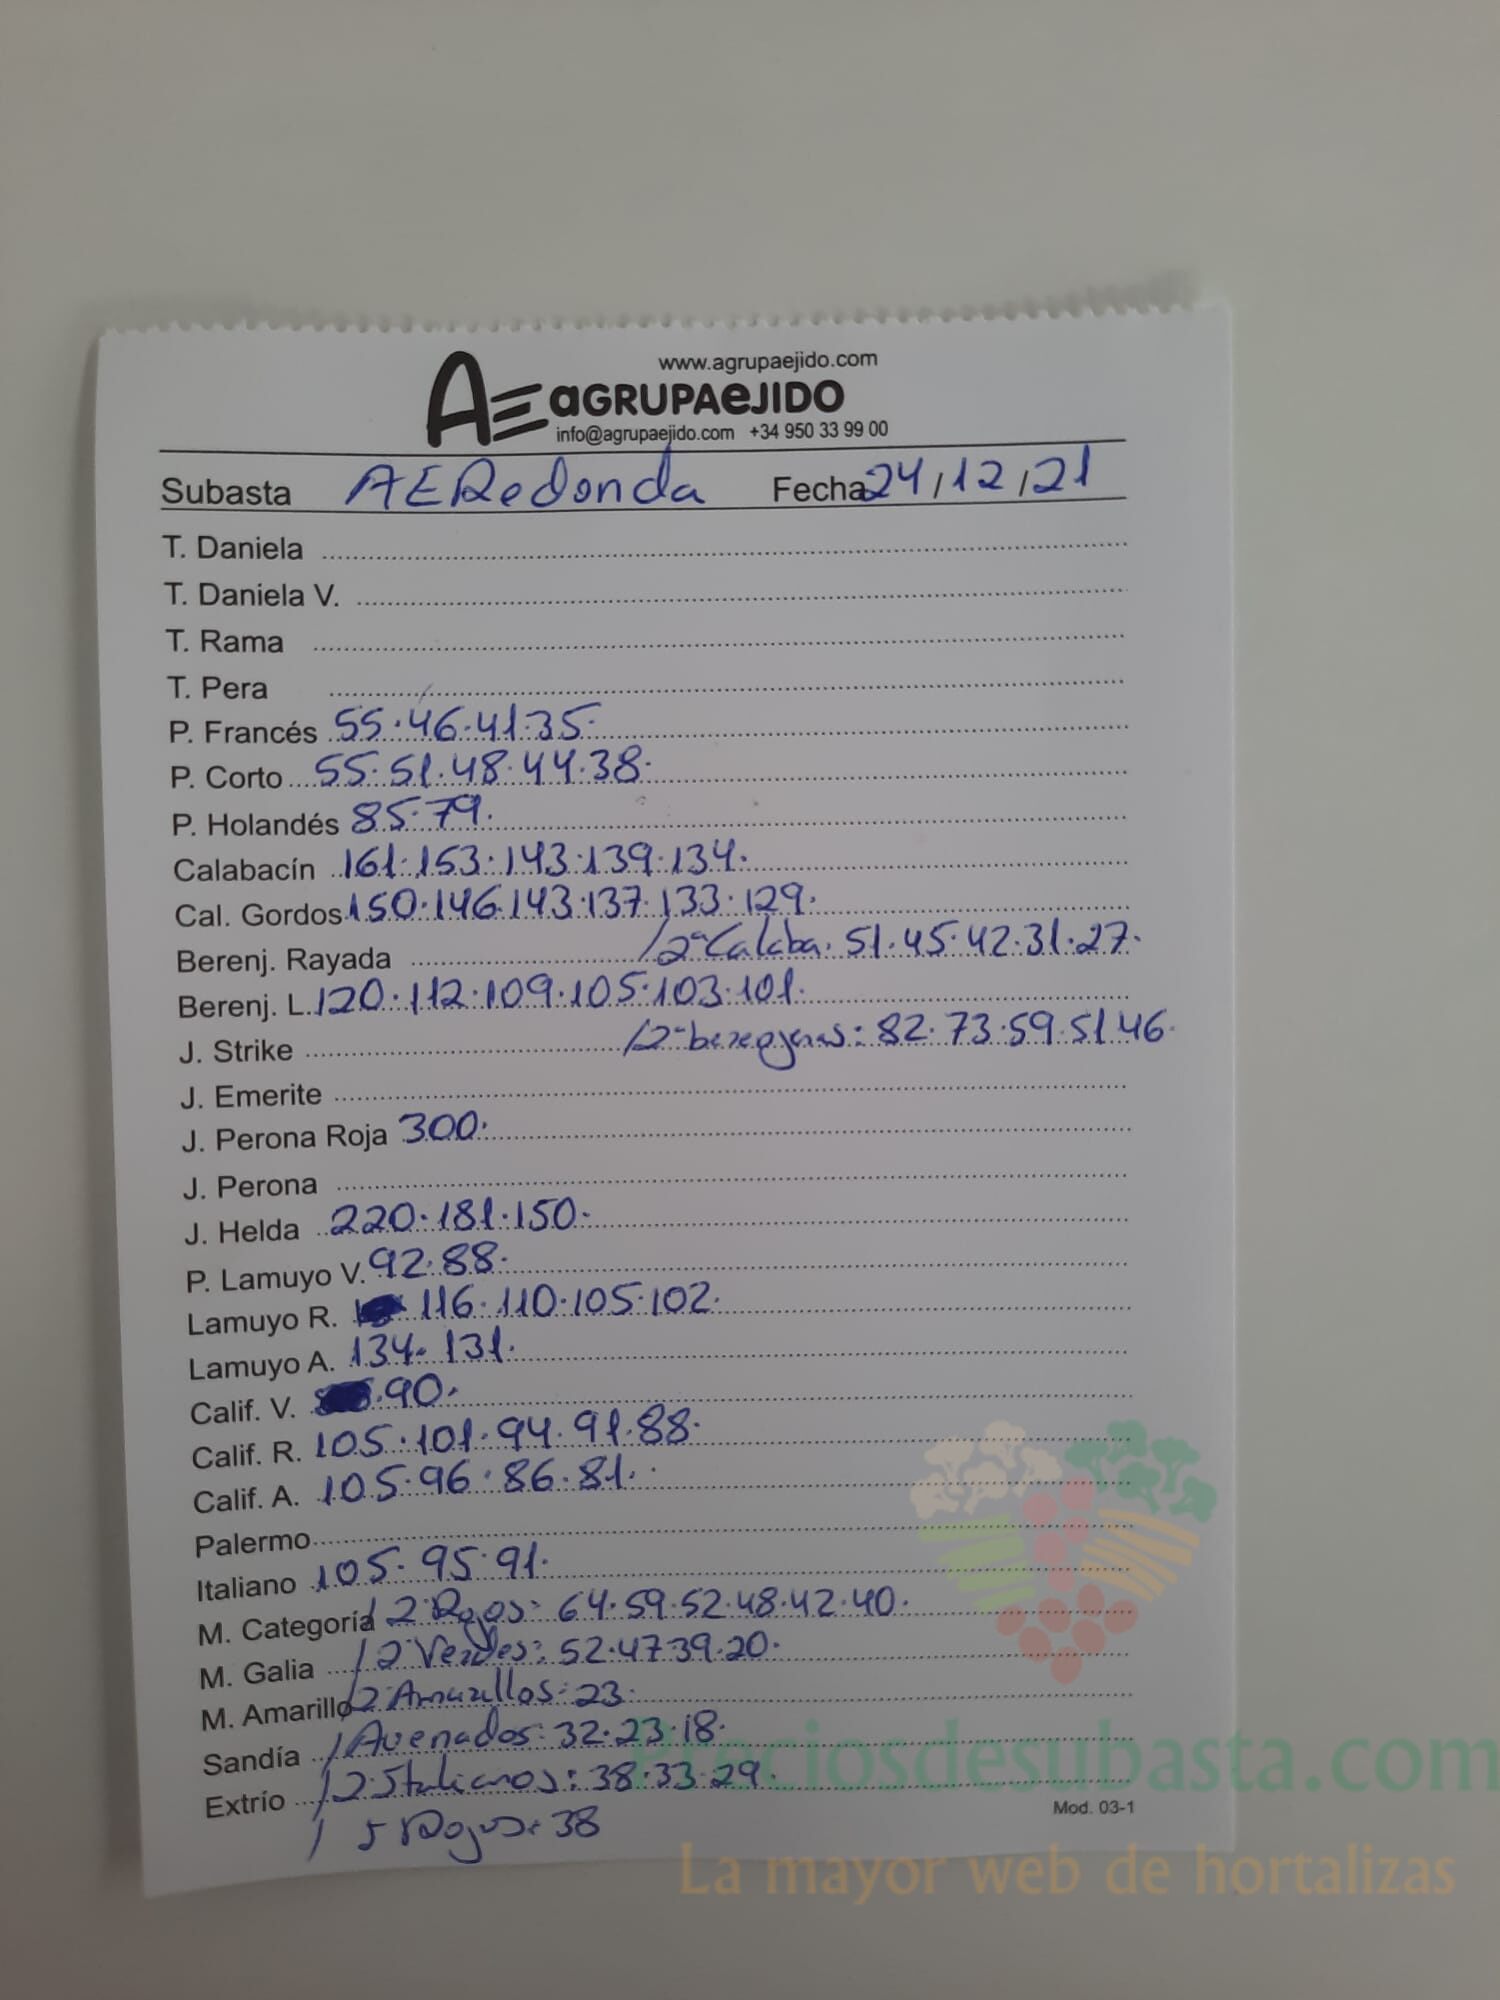 www.agrupaejido.com
AE aGRUPAeJIDO
info@agrupaejido.com +34 950 33 99 00
Subasta AERedonda Fecha 24/12/21
T. Daniela
T. Daniela V.
T. Rama
T. Pera
P. Francés 55·46·41·35·
P. Corto 55·51·48·44·38·
P. Holandés 85·79·
Calabacín 161·153·143·139·134·
Cal. Gordos 150·146·143·137·133·129·
Berenj. Rayada /2ªCalaba· 51·45·42·31·27·
Berenj. L. 120·112·109·105·103·101·
J. Strike /2ª berenjenas: 82·73·59·51·46·
J. Emerite
J. Perona Roja 300·
J. Perona
J. Helda 220·181·150·
P. Lamuyo V. 92·88·
Lamuyo R. 116·110·105·102·
Lamuyo A. 134·131·
Calif. V. 90·
Calif. R. 105·101·94·91·88·
Calif. A. 105·96·86·81·
Palermo
Italiano 105·95·91·
M. Categoría /2ªRojos: 64·59·52·48·42·40·
M. Galia /2ªVerdes: 52·47·39·20·
M. Amarillo /2ªAmarillos: 23·
Sandía /Avenados: 32·23·18·
Extrío /2·Italianos: 38·33·29·
/ Rojos: 38
Mod. 03-1
Preciosdesubasta.com
La mayor web de hortalizas